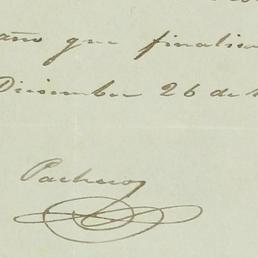 año que finaliza
Diciembre 26 de
Pacheco